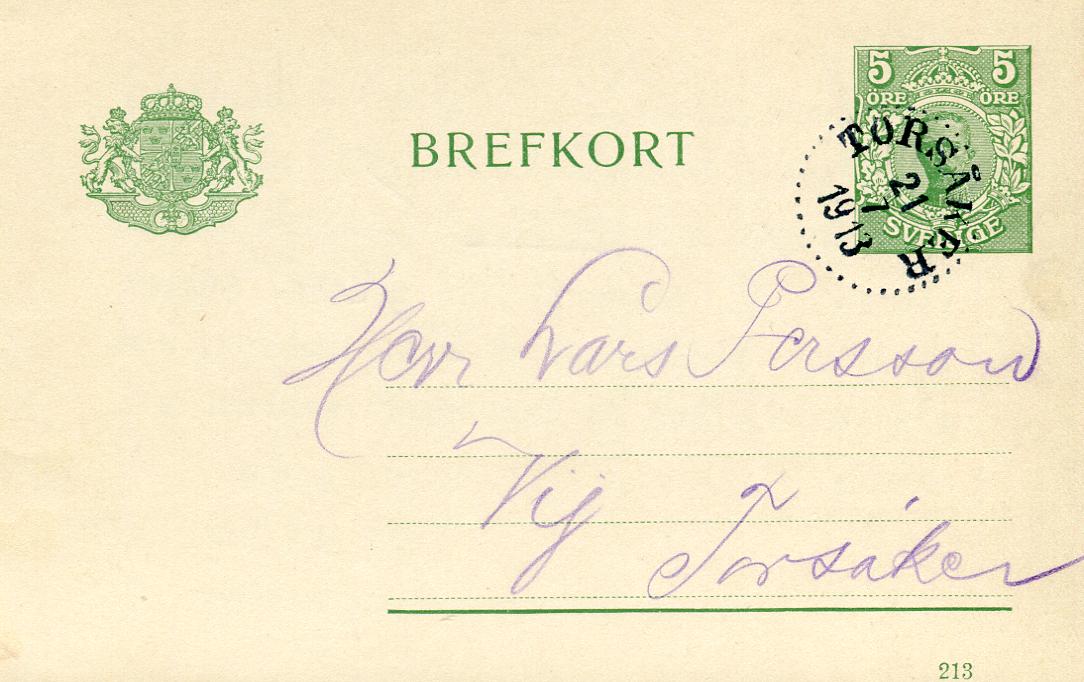 BREFKORT
5 5
ÖRE ÖRE
SVERIGE
TORSÅKER
21
7
1913
Herr Lars Persson
Vij
Torsåker
213